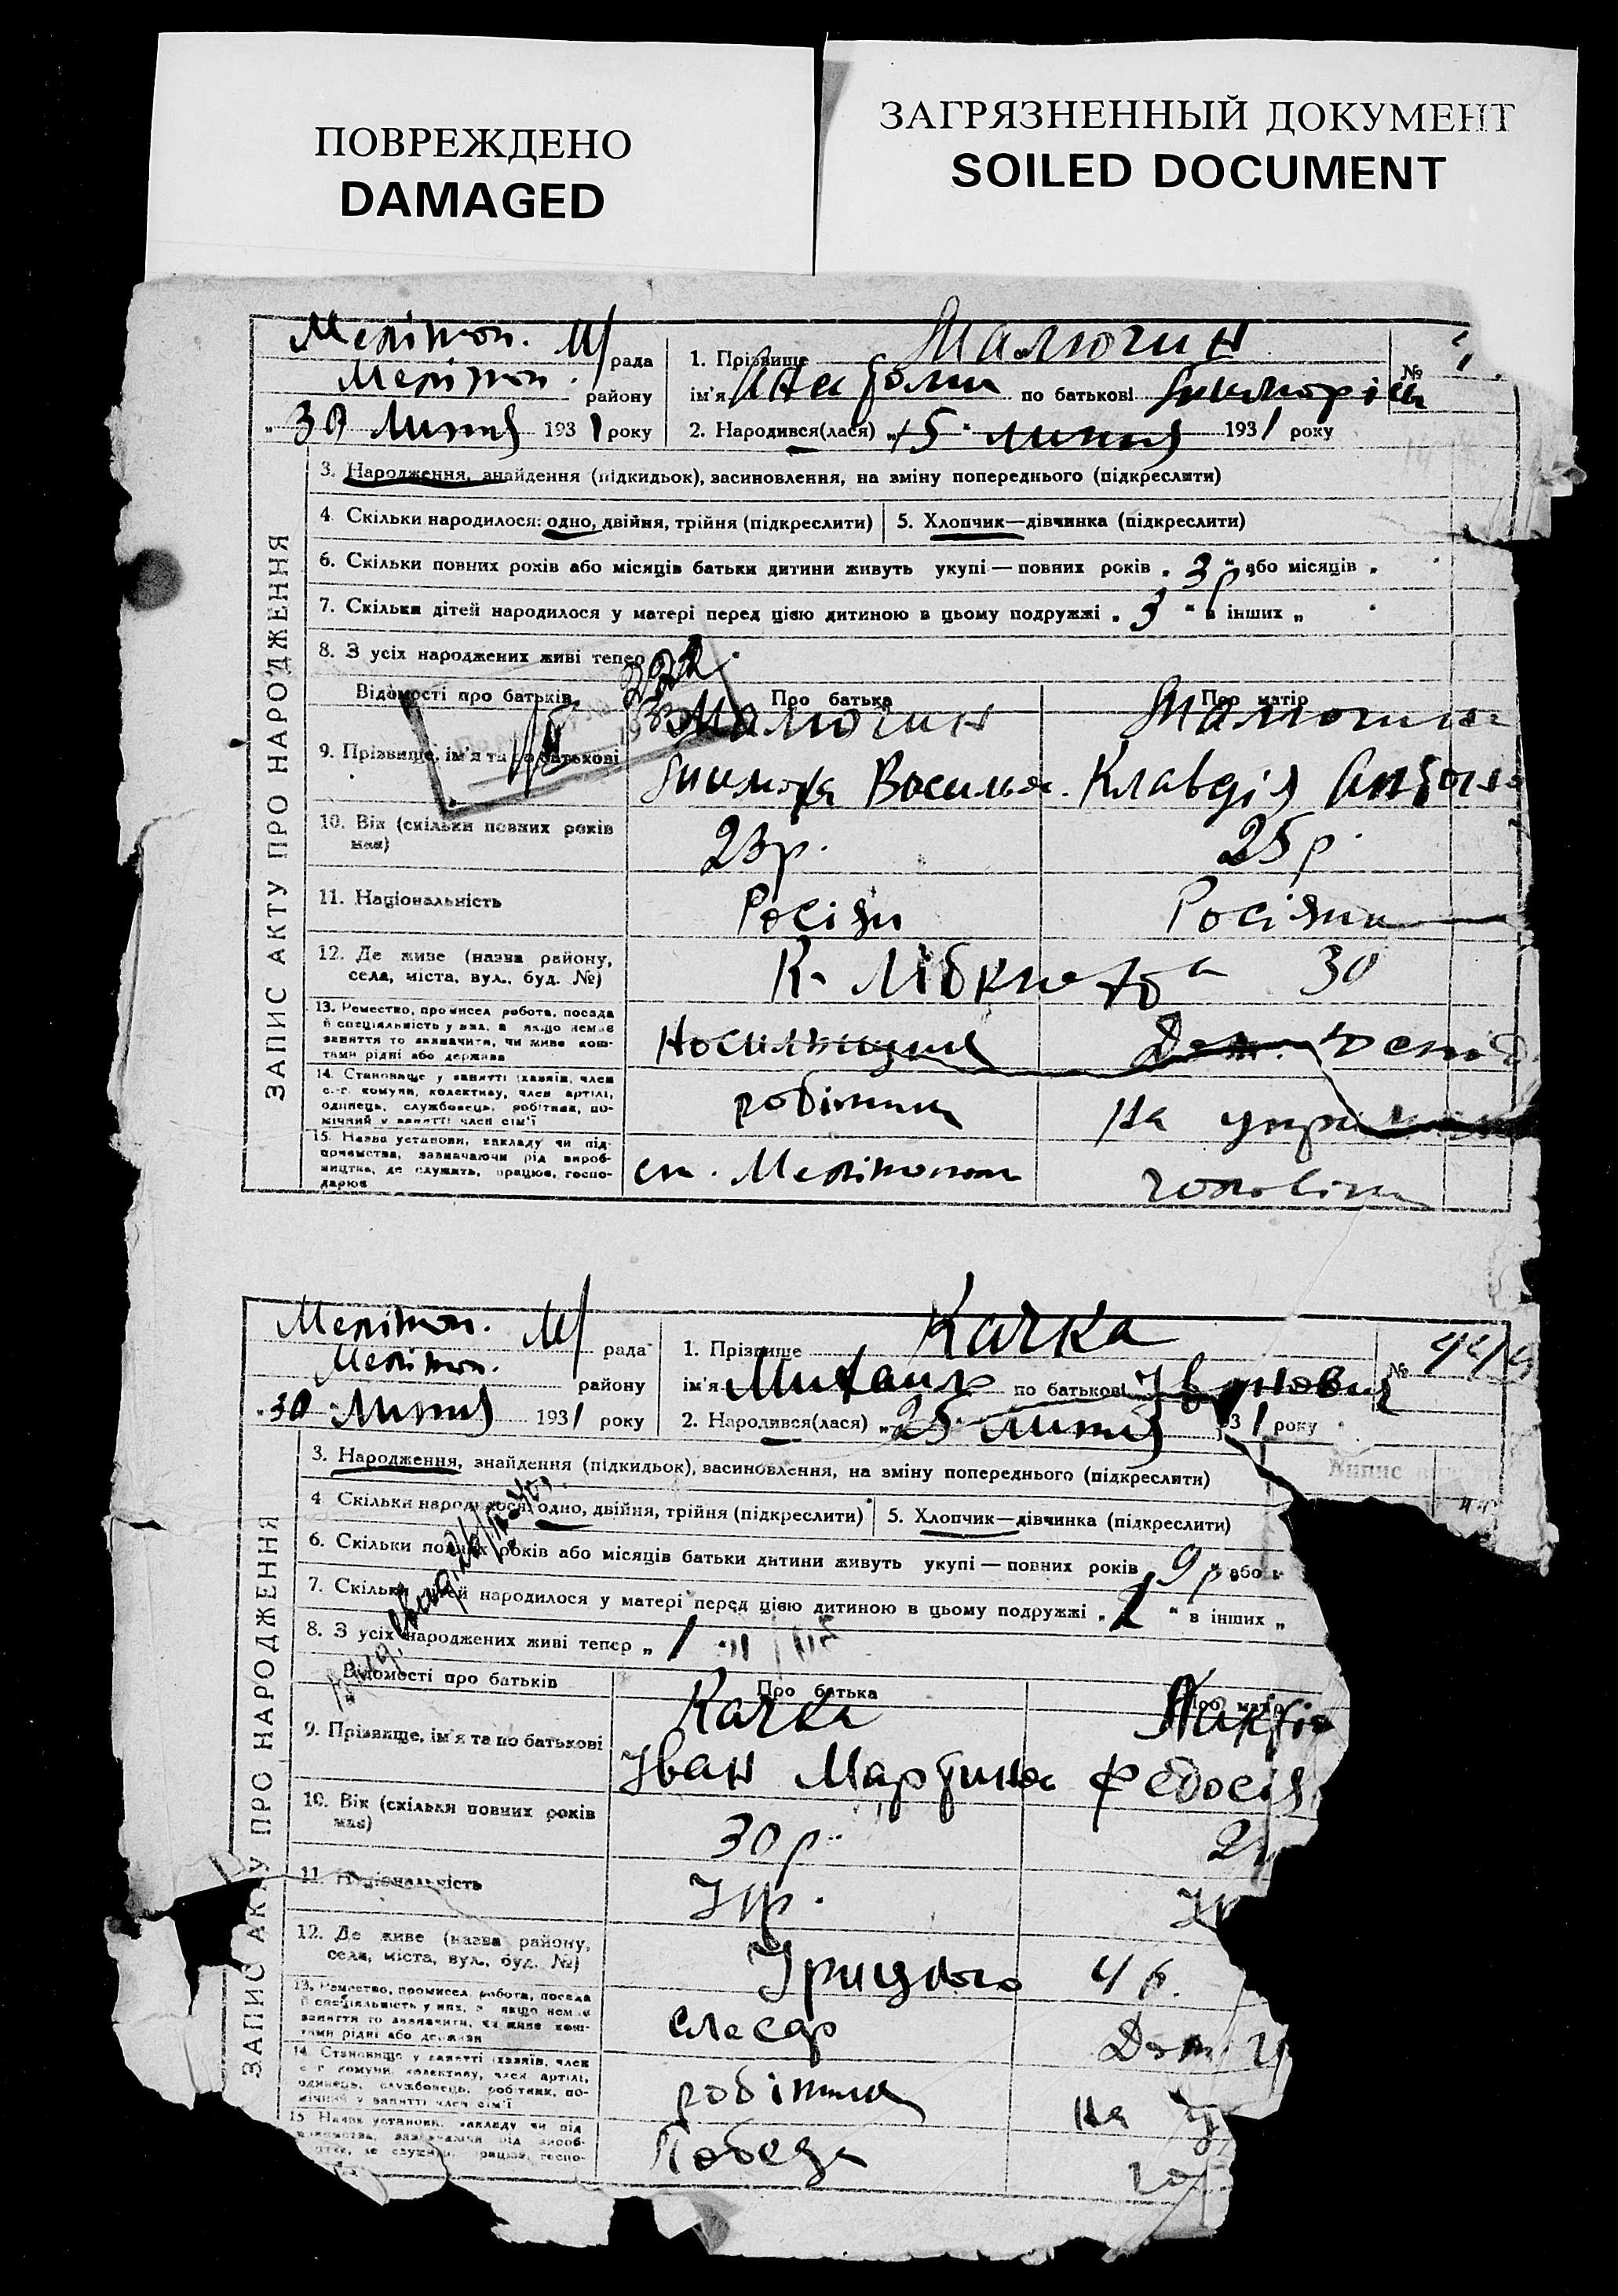 ПОВРЕЖДЕНО
DAMAGED
ЗАГРЯЗНЕННЫЙ ДОКУМЕНТ
SOILED DOCUMENT
ЗАПИС АКТУ ПРО НАРОДЖЕННЯ
Мелітоп. М/ рада
Мелітоп. району
„30 Липня 1931 року
1. Прізвище Малючин
ім'я Анатолій по батькові №
2. Народився(лася) „15“ липня 1931 року
3. Народження, знайдення (підкидьок), засиновлення, на зміну попереднього (підкреслити)
4. Скільки народилося: одно, двійня, трійня (підкреслити) 5. Хлопчик—дівчинка (підкреслити)
6. Скільки повних років або місяців батьки дитини живуть укупі — повних років „3 р.“ або місяців „
7. Скільки дітей народилося у матері перед цією дитиною в цьому подружжі „3“ в інших „
8. З усіх народжених живі тепер
Відомості про батьків Про батька Про матір
9. Прізвище, ім'я та по батькові Малючин
Васильов. Клавдія Антон
10. Вік (скільки повних років має) 23р. 25р.
11. Національність Росіян Росіянка
12. Де живе (назва району, села, міста, вул., буд. №) К. Лібкнехта 30
13. Ремество, промисел робота, посада й спеціальність у них, а якщо немає заняття то зазначити, чи живе коштами рідні або держави Носильщик Дом.
14. Становище у занятті (хазяїн, член с.-г. комуни, колективу, член артілі, одинець, службовець, робітник, помічний у занятті член сім'ї робітник на
15. Назва установи, закладу чи підприємства, зазначаючи рід виробництва, де служить, працює, господарює ст. Мелітополь чоловіка
ЗАПИС АКТУ ПРО НАРОДЖЕННЯ
Мелітоп. М/ рада
Мелітоп. району
„30“ Липня 1931 року
1. Прізвище Качка
ім'я Михаил по батькові Іванович №
2. Народився(лася) „25“ липня 31 року
Випис
3. Народження, знайдення (підкидьок), засиновлення, на зміну попереднього (підкреслити)
4. Скільки народилося: одно, двійня, трійня (підкреслити) 5. Хлопчик—дівчинка (підкреслити)
6. Скільки повних років або місяців батьки дитини живуть укупі — повних років „9 р.“ або
7. Скільки дітей народилося у матері перед цією дитиною в цьому подружжі „2“ в інших „
8. З усіх народжених живі тепер „1
Відомості про батьків Про батька Про матір
9. Прізвище, ім'я та по батькові Качка
Іван Мартинов Федосія
10. Вік (скільки повних років має) 30р. 2
11. Національність Укр. Ук
12. Де живе (назва району, села, міста, вул., буд. №) Урицкого 46.
13. Ремество, промисел робота, посада й спеціальність у них, а якщо немає заняття то зазначити, чи живе коштами рідні або держави слесар Дом.
14. Становище у занятті (хазяїн, член с.-г. комуни, колективу, член артілі, одинець, службовець, робітник, помічний у занятті член сім'ї робітник на
15. Назва установи, закладу чи підприємства, зазначаючи рід виробництва, де служить, працює, госпо- Победа